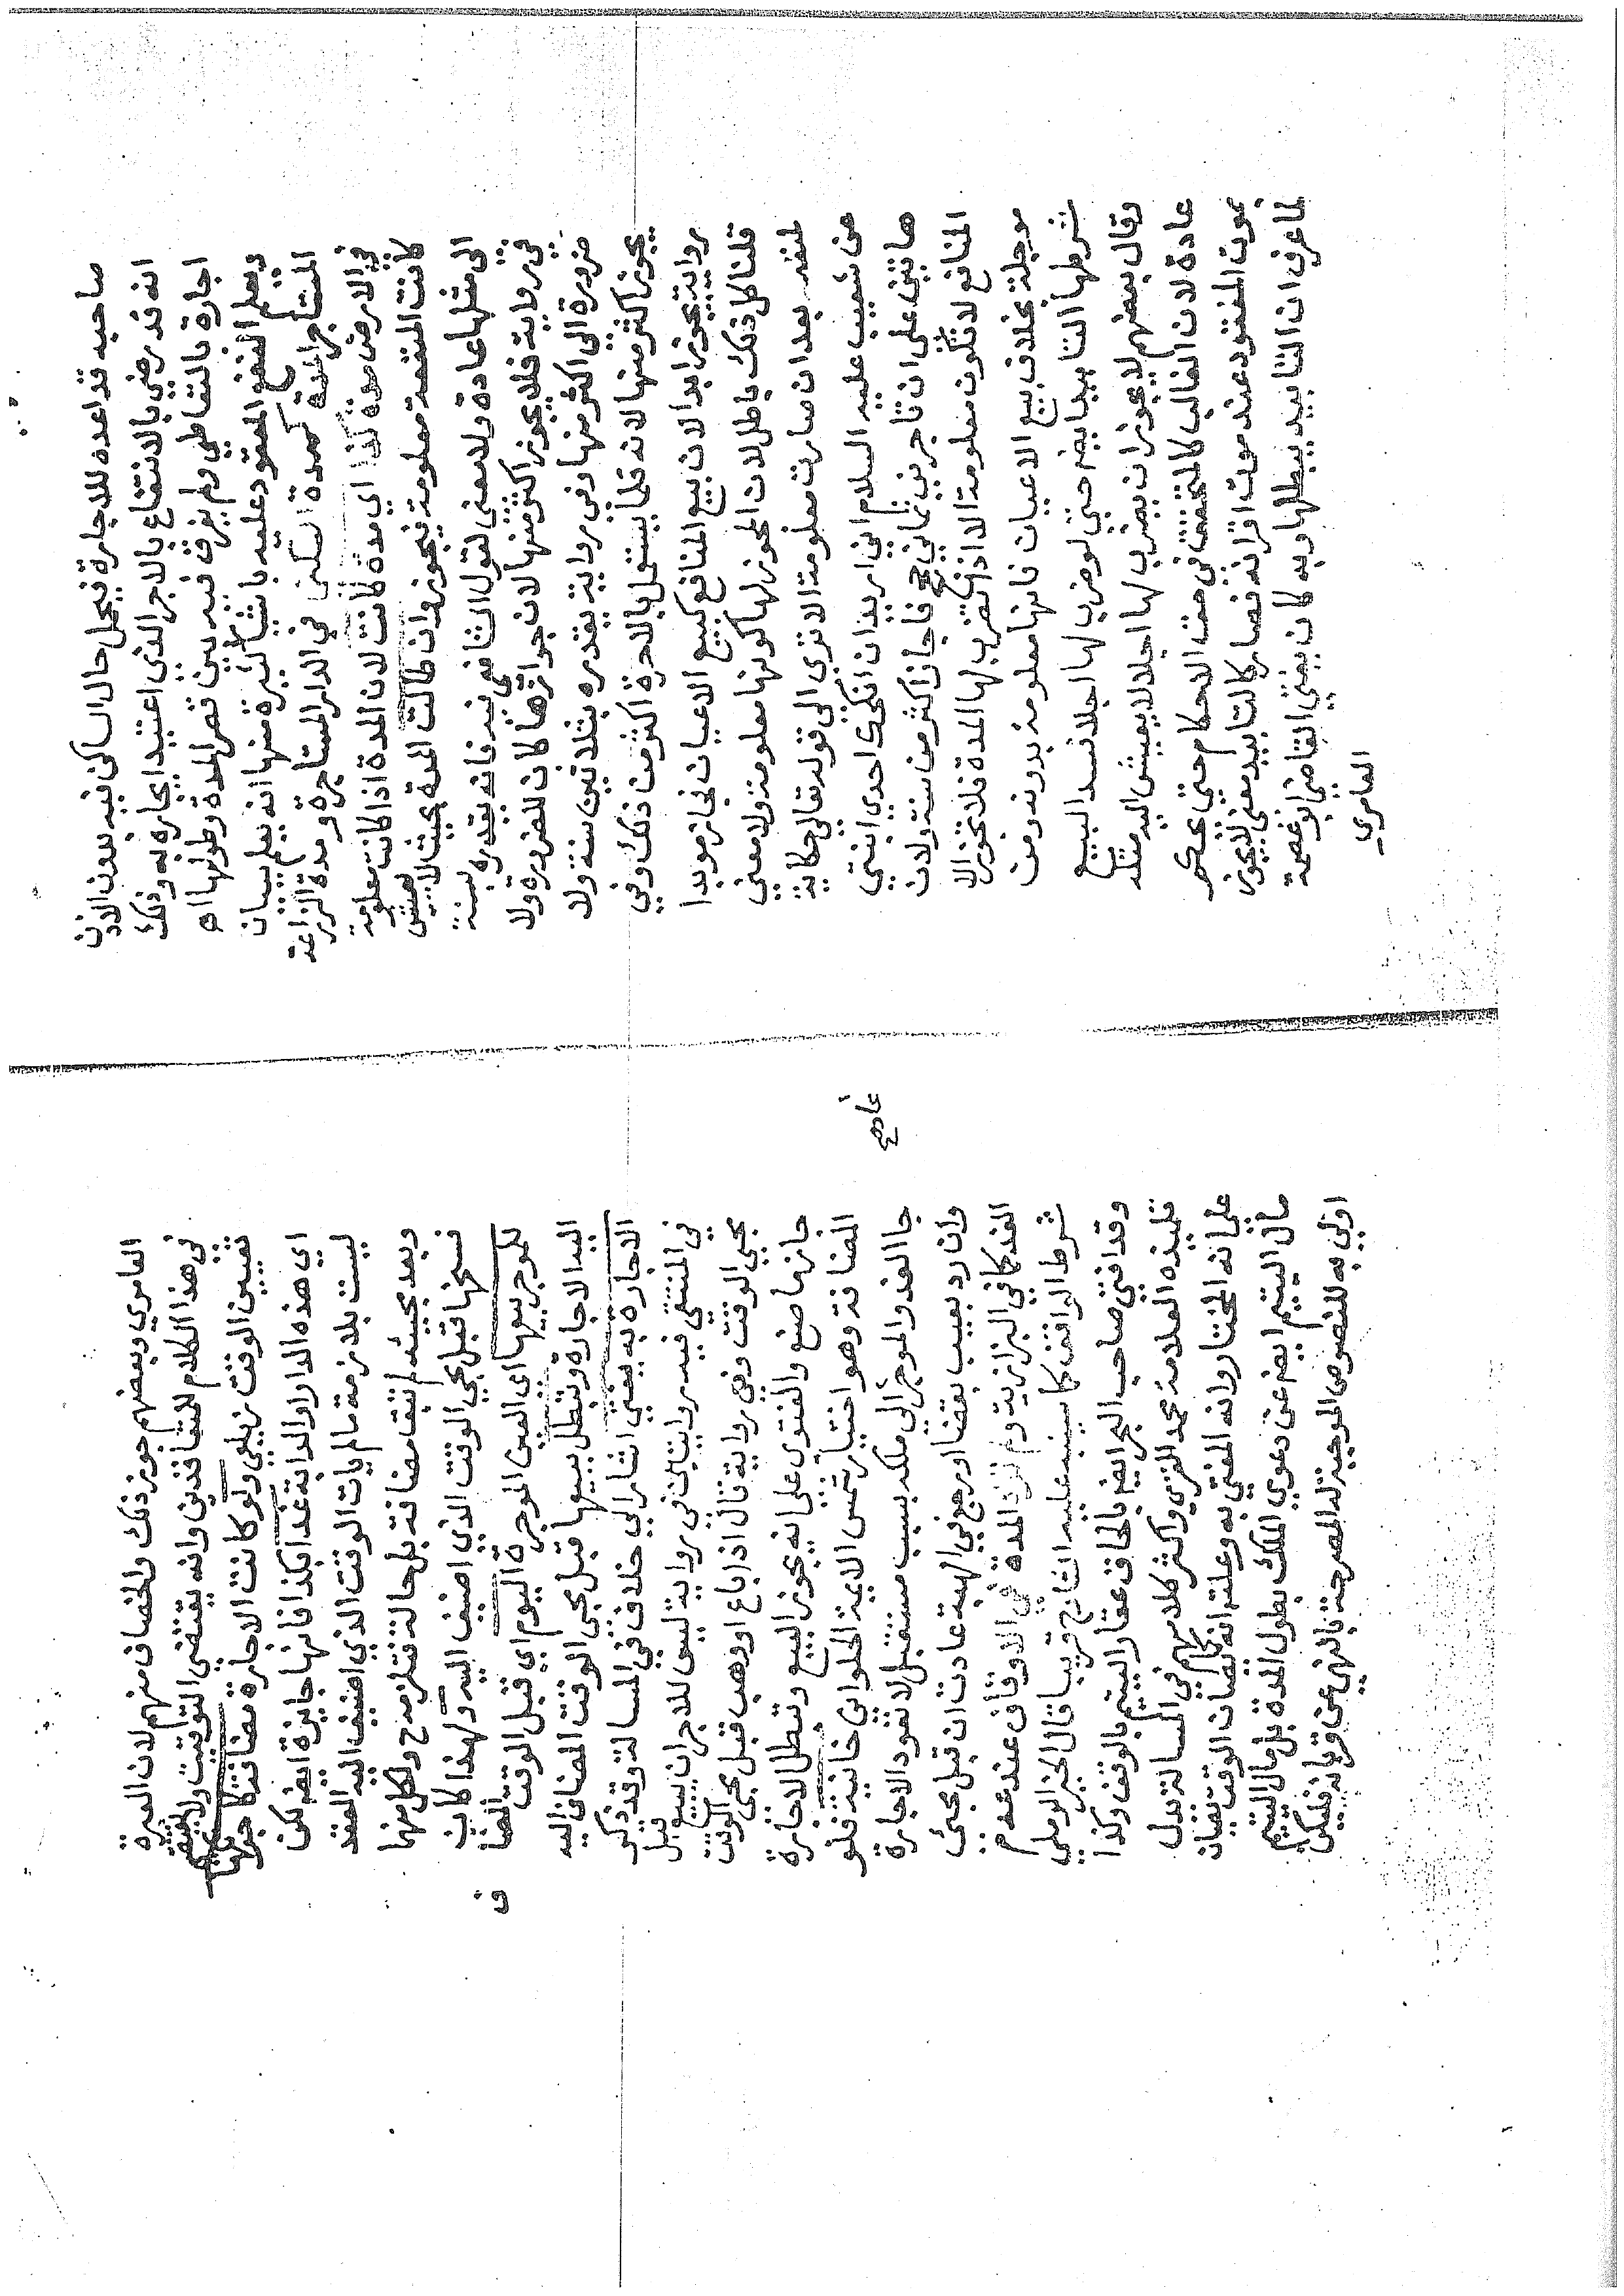 صاحبه قد اعده للاجارة فيحمل حال الساكن فيه بدون الاذن
انه قد رضي بالانتفاع بالاجر الذي اعتيد ايجاره به وذلك
اجارة بالتعاطي ولم يفرق فيه بين قصر المدة وطولها اه
ويعلم النفع المعقود عليه باشيا كثيرة منها انه يعلم ببيان
المستأجر المدة كمدة السكنى في الدار المستاجرة ومدة الزراعة
في الارض مدة كذا اي مدة كانت لان المدة اذا كانت معلومة
كانت المنفعة معلومة فيجوز وان طالت المدة بحيث لا يعيش
الى مثلها عادة ولا معنى لقول الشافعي فيه فانه يقدره بسنة
في رواية فلا يجوز اكثر منها لان جوازها كان للضرورة ولا
ضرورة الى اكثر منها وفي رواية يقدره بثلاثين سنة ولا
يجوز اكثر منها لانه قلما يستعمل بالاجرة اكثر من ذلك وفي
رواية يجوز ابدا لان بيع المنافع كبيع الاعيان فجاز موبدا
قلنا كل ذلك باطل لان المجوز لها كونها معلومة ولا معنى
لمنعه بعد ان صارت معلومة الا ترى الى قوله تعالى حكاية
عن شعيب عليه السلام اني اريد ان انكحك احدى ابنتي
هاتين على ان تاجرني ثماني حجج فاجاز اكثر من سنة ولان
المنافع لا تكون معلومة الا اذا تضرب لها المدة فلا تجوز الا
موجلة بخلاف بيع الاعيان فانها معلومة بدونه ومن
شرطها التابيد ايضا حتى لو ضرب لها اجلا فسد البيع
وقال بعضهم لا يجوز ان يضرب لها اجلا لا يعيش اليه مثله
عادة لان الغالب كالمتحقق في حق الاحكام حتى يحكم
بموت المفقود عند موت اقرانه فصار كالتابيد معنى فلا يجوز
لما عرف ان التابيد يبطلها وبه كان يفتي القاضي ابو عصمة
العامري
العامري وبعضهم جوز ذلك والخصاف منهم لان العبرة
في هذا الكلام للمتعاقدين وانه يقتضي التوقيت ولا
تعيين الوقت زيلعي ولو كانت الاجارة مضافة كاجرتها
اي هذه الدار او الدابة غدا بكذا فانها جايزة ايضا لكن
ليست بلازمة ما لم يات الوقت الذي اضيف اليه العقد
وبعد مجيئه لم تبق مضافة بل حالة فتلزم ح ولكل منهما
فسخها قبل مجي الوقت الذي اضيف اليه ولهذا كان
للموجر بيعها اي العين الموجرة اليوم اي قبل الوقت المضاف
اليه الاجارة وتبطل ببيعها قبل مجي الوقت المضاف اليه
الاجارة به يفتى اشار الى خلاف في المسالة وقد ذكر
في المنتقى فيه روايتان في رواية ليس للاجر ان يبيع قبل
مجي الوقت وفي رواية قال اذا باع او وهب قبل مجي الوقت
جاز ما صنع والفتوى على انه يجوز البيع وتبطل الاجارة
المضافة وهو اختيار شمس الايمة الحلواني خانية فلو
جا الغد والموجر الى ملكه بسبب مستقبل لا تعود الاجارة
وان رد بعيب بقضا او رجع في الهبة عادت ان قبل مجي
عادت
الغد كما في البزازية ولم تزد المدة في الاوقاف عند عدم
شرط الواقف كما سينبه عليه الشارح قريبا قال الخير الرملي
وقد افتى صاحب البحر ايضا بالحاق عقار اليتيم بالوقف وكذا
تلميذه العلامة محمد الغزي واكثر كلامهم في المسالة تدل
على انه المختار وانه المفتى به وعلته انه يصان الوقف يصان
مال اليتيم ايضا عن دعوى الملك بطول المدة بل مال اليتيم
اولى به للنصوص الموجبة له المصرحة بالنهي عن قربانه فليكن